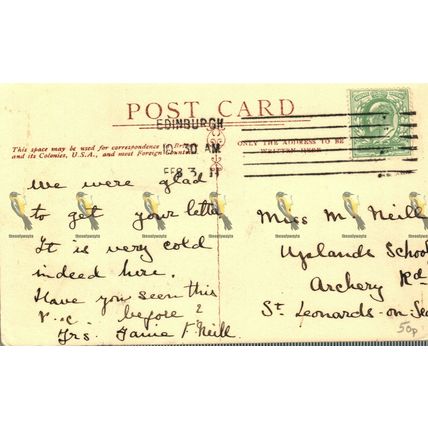 POST CARD
EDINBURGH
10.30 AM
FEB 3 11
This space may be used for correspondence
and its Colonies, U.S.A., and most Foreign
ONLY THE ADDRESS TO BE
WRITTEN HERE
We were glad
to get your letter
It is very cold
indeed here.
Have you seen this
P.c. before?
Yrs.
Neill.
Miss M. Neill
Uplands School
Archery Rd
St Leonards-on-Sea
50p